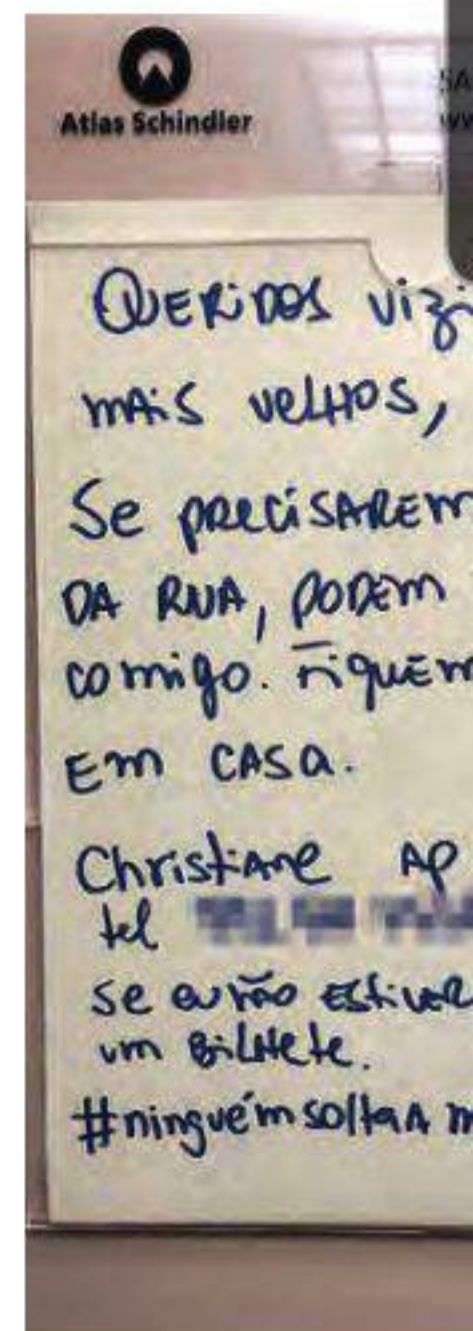 Atlas Schindler
SA
QUERIDOS vizi
mAiS velHOS,
Se precisAREm
DA RUA, PODEm
comigo. FiquEm
Em CASa.
ChristiAne AP
tel
se eu não EStiveR
um BiLHete.
#ninguémsoltaA m